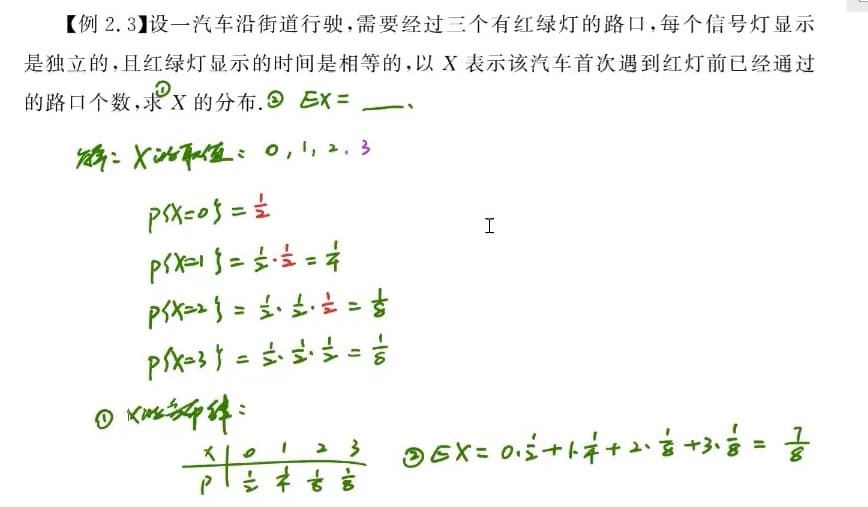 【例 2.3】设一汽车沿街道行驶,需要经过三个有红绿灯的路口,每个信号灯显示
是独立的,且红绿灯显示的时间是相等的,以 X 表示该汽车首次遇到红灯前已经通过
的路口个数,求①X 的分布.② EX = ___.
解: X的取值: 0, 1, 2, 3
P{X=0} = 1/2
P{X=1} = 1/2·1/2 = 1/4
P{X=2} = 1/2·1/2·1/2 = 1/8
P{X=3} = 1/2·1/2·1/2 = 1/8
① X的分布律:
X | 0 1 2 3
P | 1/2 1/4 1/8 1/8
② EX = 0·1/2+1·1/4+2·1/8+3·1/8 = 7/8